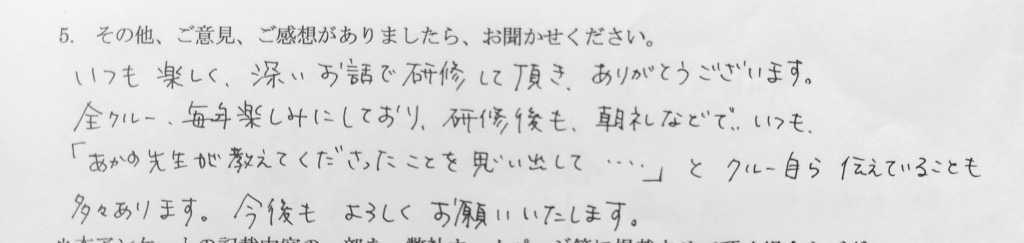 5. その他、ご意見、ご感想がありましたら、お聞かせください。
いつも楽しく、深いお話で研修して頂き、ありがとうございます。
全クルー、毎年楽しみにしており、研修後も、朝礼などで、いつも、
「あかの先生が教えてくださったことを思い出して‥‥」とクルー自ら伝えていることも
多々あります。今後もよろしくお願いいたします。